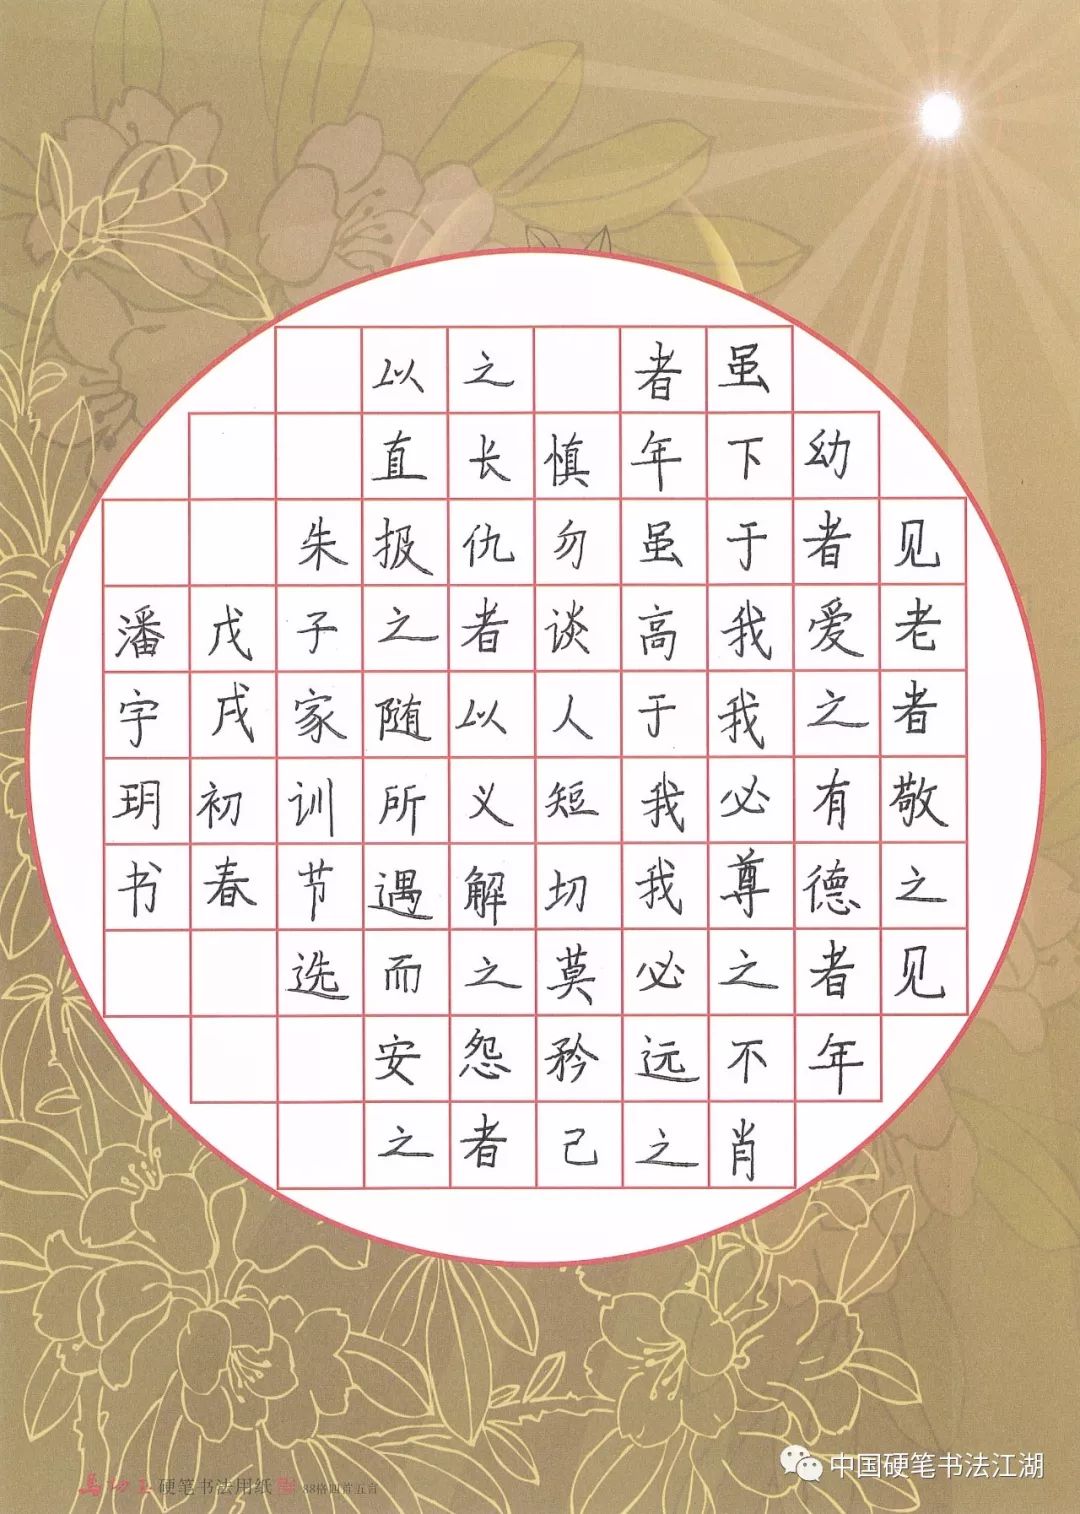 见老者敬之见
幼者爱之有德者年
虽下于我我必尊之不肖
者年虽高于我我必远之
慎勿谈人短切莫矜己
之长仇者以义解之怨者
以直报之随所遇而安之
朱子家训节选
戊戌初春
潘宇玥书
硬笔书法用纸
中国硬笔书法江湖